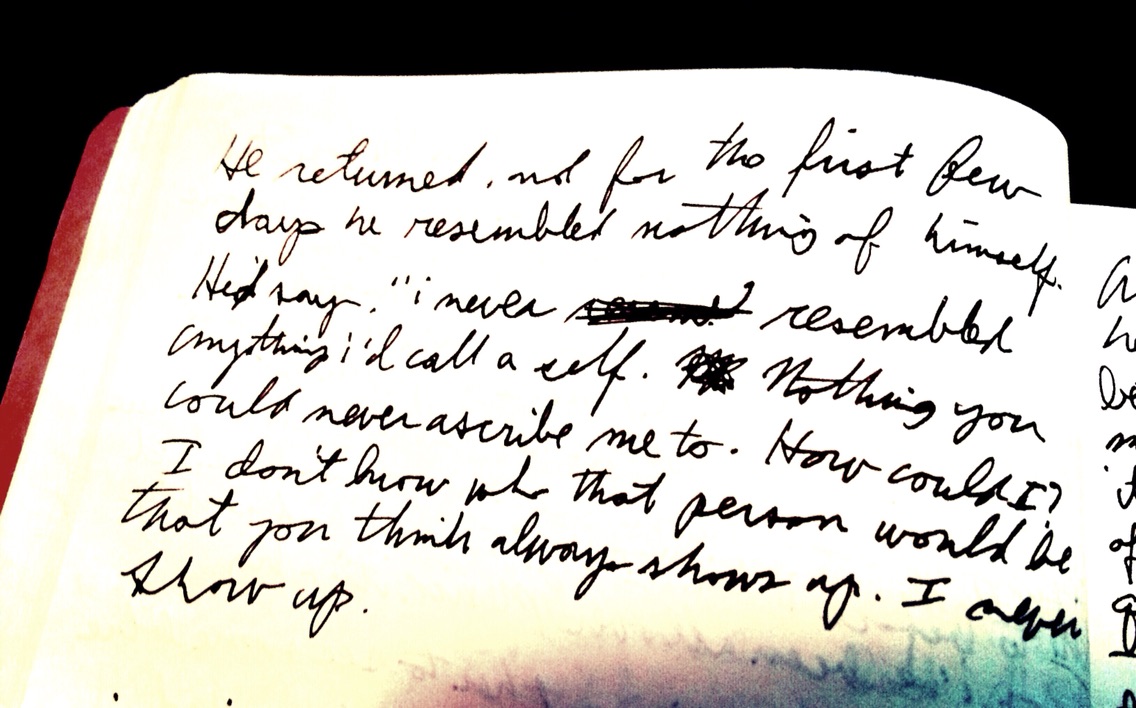 He returned, not for the first few
days he resembled nothing of himself.
He'd say, "i never resembled
anything i'd call a self. Nothing you
could never ascribe me to. How could I?
I don't know who that person would be
that you think always shows up. I never
show up.